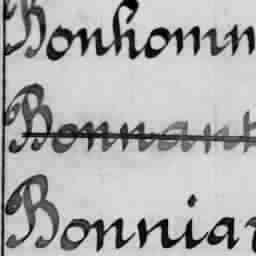 Bonhomm
Bonnant
Bonniar